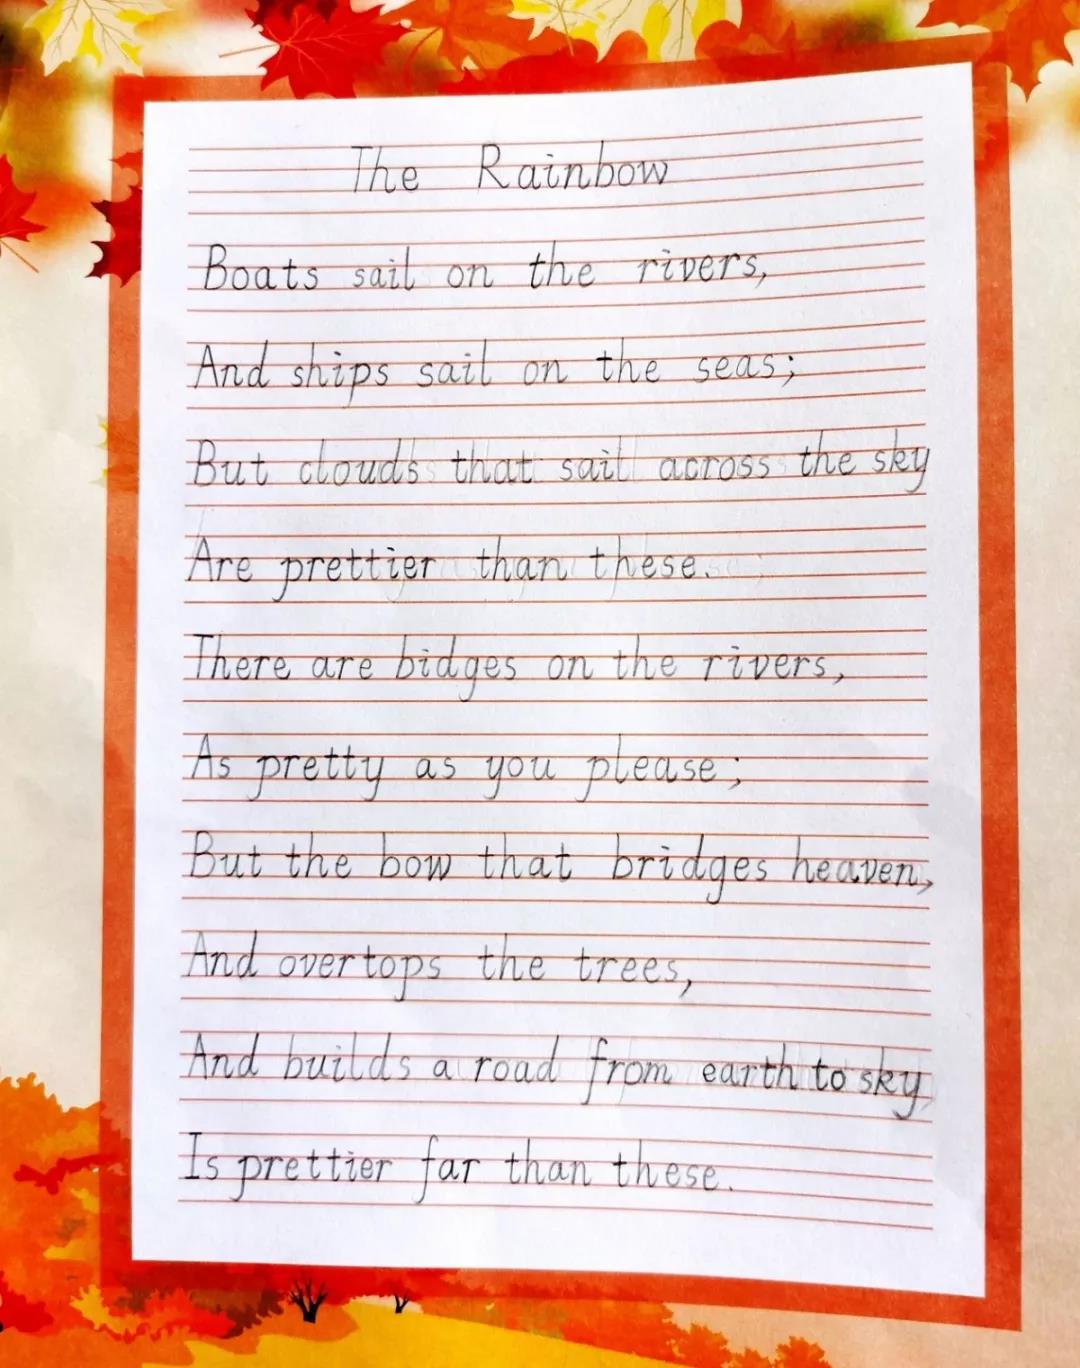 The Rainbow
Boats sail on the rivers,
And ships sail on the seas;
But clouds that sail across the sky
Are prettier than these.
There are bidges on the rivers,
As pretty as you please;
But the bow that bridges heaven,
And overtops the trees,
And builds a road from earth to sky
Is prettier far than these.